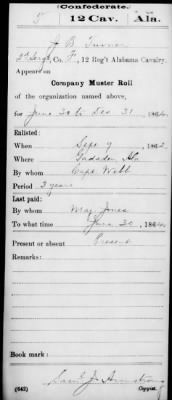 (Confederate.)
T 12 Cav. Ala.
J B Turner
2d Sergt, Co. F, 12 Reg't Alabama Cavalry.
Appears on
Company Muster Roll
of the organization named above,
for June 30 to Dec 31, 1864.
Enlisted:
When Sept 9, 1862.
Where Gadsden Ala
By whom Capt Webb
Period 3 years
Last paid:
By whom Maj Jones
To what time June 30, 1864.
Present or absent Present
Remarks:
Book mark:
(642) Copyist.